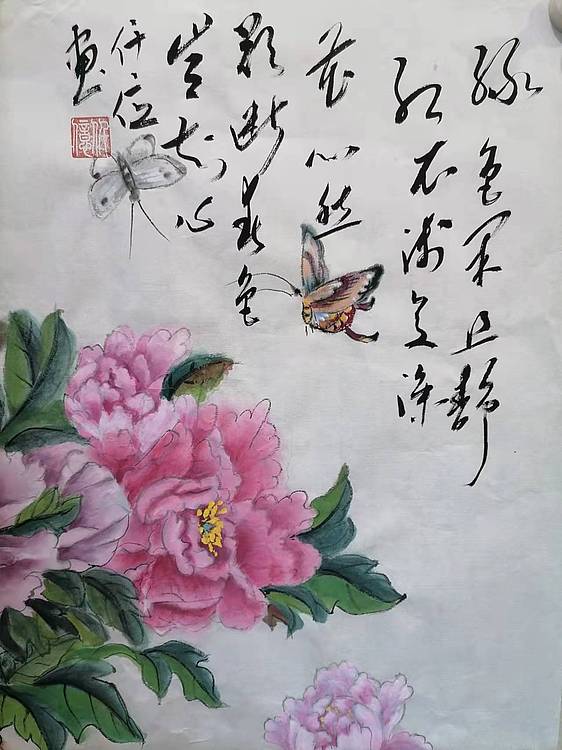 绿艳闲且静
红衣浅复深
花心愁
欲断春色
岂知心
画